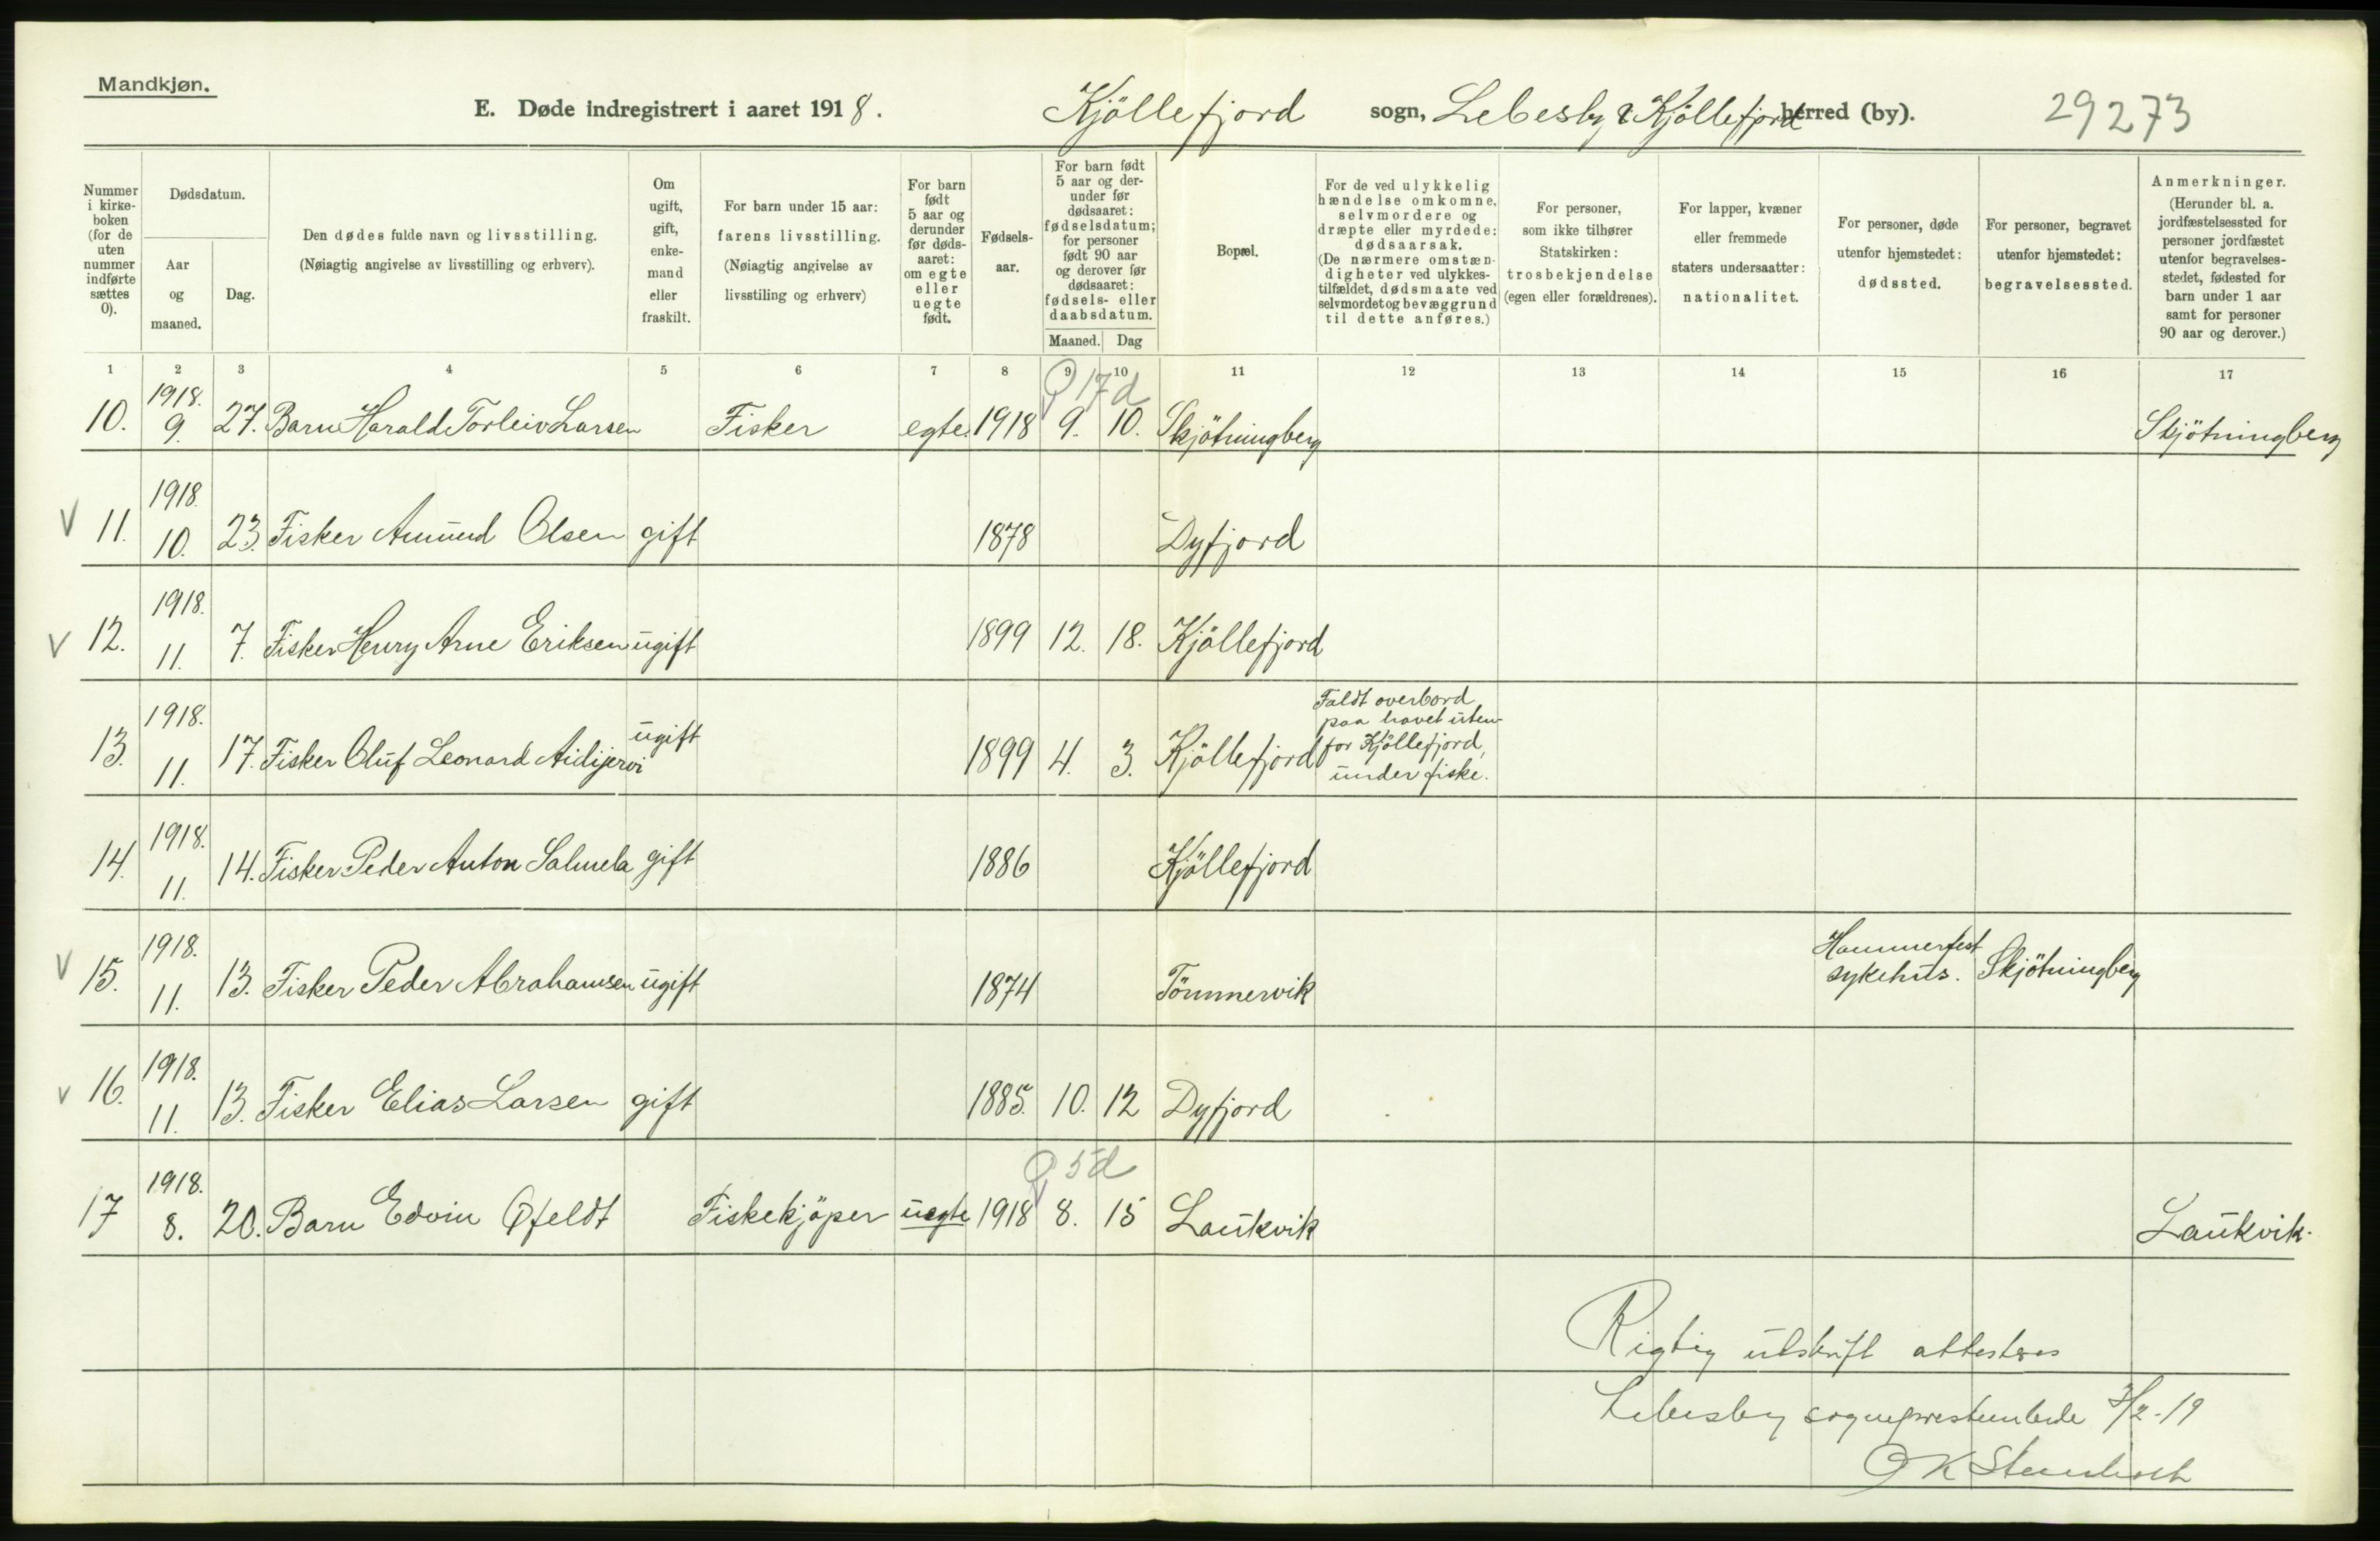 Mandkjøn.
E. Døde indregistrert i aaret 1918. Kjöllefjord sogn, Lebesby & Kjöllefjord herred (by). 29273
Nummer i kirkeboken (for de uten nummer indførte sættes 0).
Dødsdatum.
Aar og maaned.
Dag.
Den dødes fulde navn og livsstilling.
(Nøiagtig angivelse av livsstilling og erhverv).
Om ugift, gift, enkemand eller fraskilt.
For barn under 15 aar: farens livsstilling.
(Nøiagtig angivelse av livsstiling og erhverv)
For barn født 5 aar og derunder før dødsaaret: om egte eller uegte født.
Fødselsaar.
For barn født 5 aar og derunder før dødsaaret: fødselsdatum; for personer født 90 aar og derover før dødsaaret: fødsels- eller daabsdatum.
Maaned. Dag
Bopæl.
For de ved ulykkelig hændelse omkomne, selvmordere og dræpte eller myrdede: dødsaarsak. (De nærmere omstændigheter ved ulykkestilfældet, dødsmaate ved selvmordet og bevæggrund til dette anføres.)
For personer, som ikke tilhører Statskirken: trosbekjendelse (egen eller forældrenes).
For lapper, kvæner eller fremmede staters undersaatter: nationalitet.
For personer, døde utenfor hjemstedet: dødssted.
For personer, begravet utenfor hjemstedet: begravelsessted.
Anmerkninger.
(Herunder bl. a. jordfæstelsessted for personer jordfæstet utenfor begravelsesstedet, fødested for barn under 1 aar samt for personer 90 aar og derover.)
1 2 3 4 5 6 7 8 9 10 11 12 13 14 15 16 17
17 d
10. 1918. 9. 27. Barn Harald Torleiv Larsen Fisker egte. 1918 9. 10. Skjötningberg Skjötningberg
V 11. 1918. 10. 23. Fisker Amund Olsen gift 1878 Dyfjord
V 12. 1918. 11. 7. Fisker Henry Arne Eriksen ugift 1899 12. 18. Kjöllefjord
13. 1918. 11. 17. Fisker Oluf Leonard Aidijervi ugift 1899 4. 3. Kjöllefjord Faldt overbord
paa havet uten-
for Kjöllefjord,
under fiske.
14. 1918. 11. 14. Fisker Peder Anton Salmela gift 1886 Kjöllefjord
V 15. 1918. 11. 13. Fisker Peder Abrahamsen ugift 1874 Tömmervik Hammerfest sykehus. Skjötningberg
V 16. 1918. 11. 13. Fisker Elias Larsen gift 1885. 10. 12 Dyfjord
5 d
17 1918. 8. 20. Barn Edvin Øfeldt Fiskekjöper uegte 1918 8. 15 Laukvik Laukvik.
Rigtig utskrift attesteres
Lebesby sogneprestembede 3/2-19